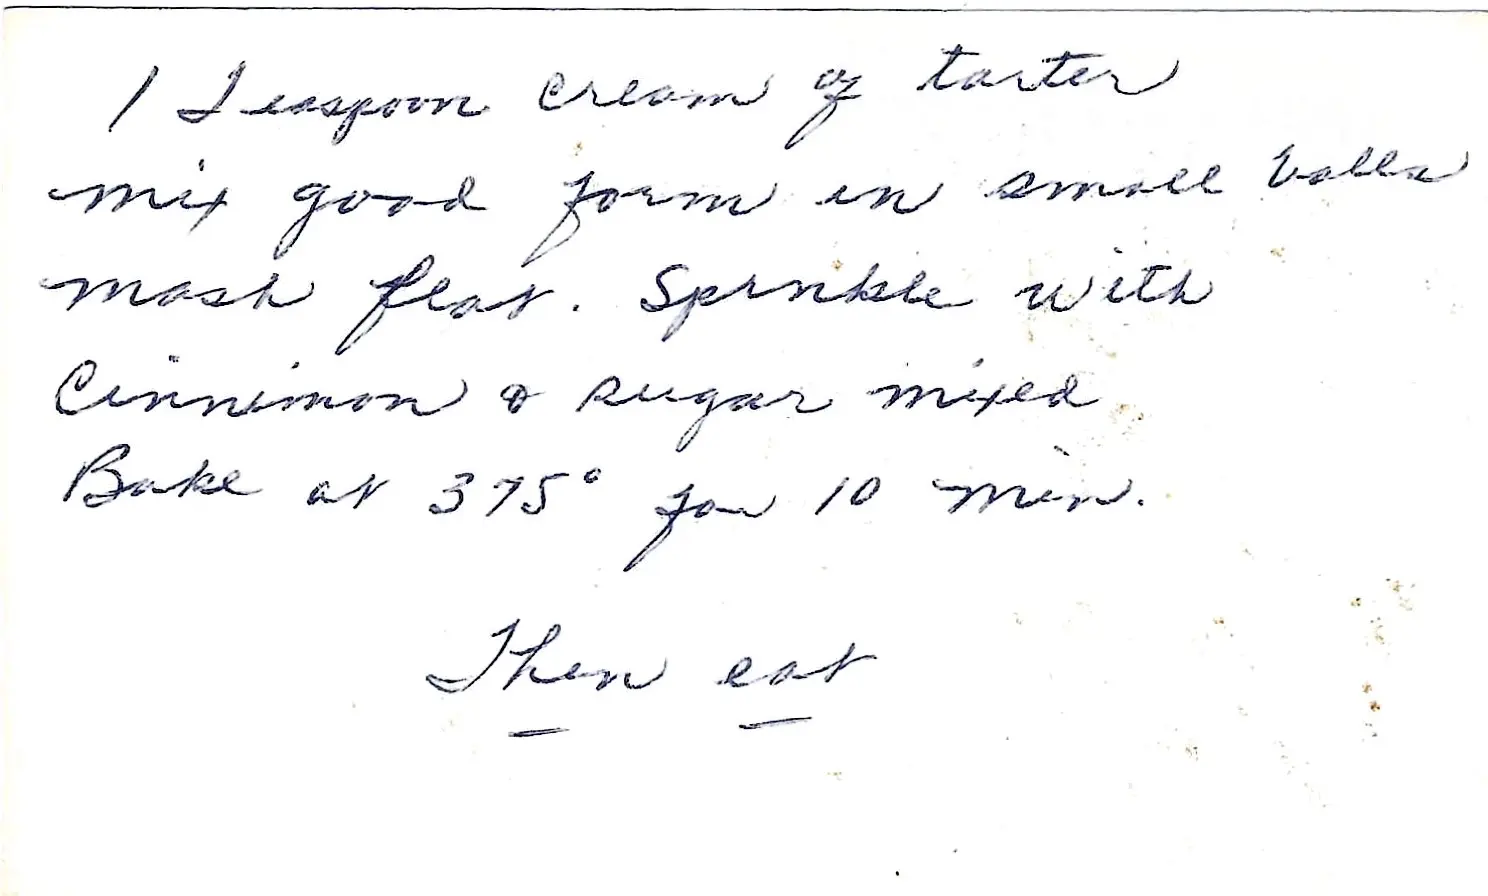 1 Teaspoon cream of tarter
mix good form in small balls
mash flat. Sprinkle with
Cinnimon & sugar mixed
Bake at 375° for 10 min.
Then eat